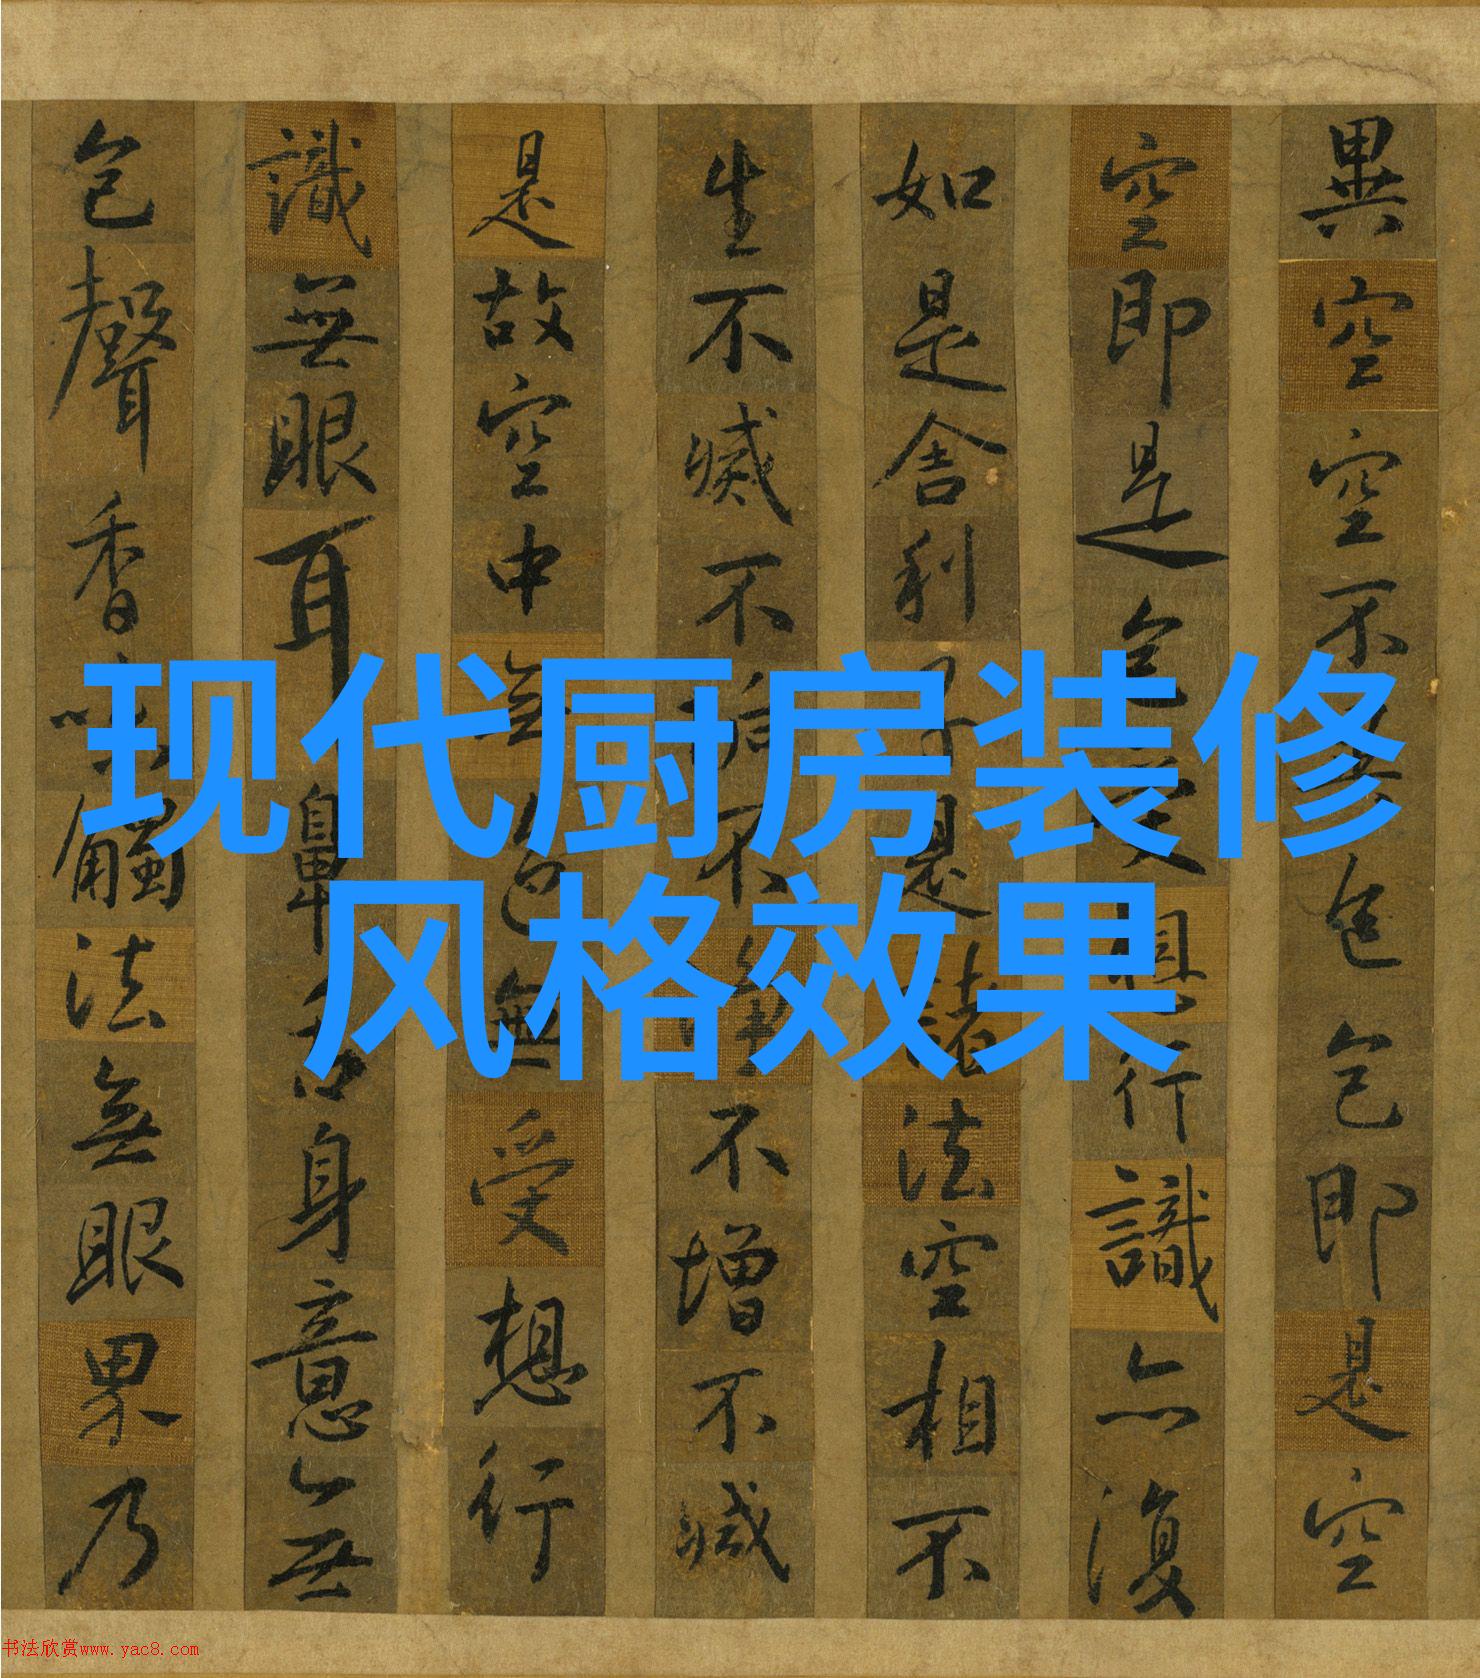 異空空不異色色即是空
空即是色受想行識亦復
如是舍利子是諸法空相不
生不滅不垢不淨不增不減
是故空中無色無受想行
識無眼耳鼻舌身意無
色聲香味觸法無眼界乃
现代厨房装修
风格效果
书法欣赏www.yac8.com